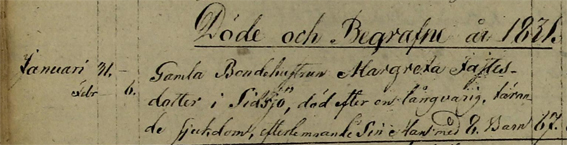 Döde och Begrafne år 1831.
Januari 31. — Gamla Bondehustrun Margreta Fajtes-
Febr — 6. dotter i Sidsjö, död efter en långvarig, täran-
de sjukdom, efterlemnande Sin e Man med 8. Barn 67.